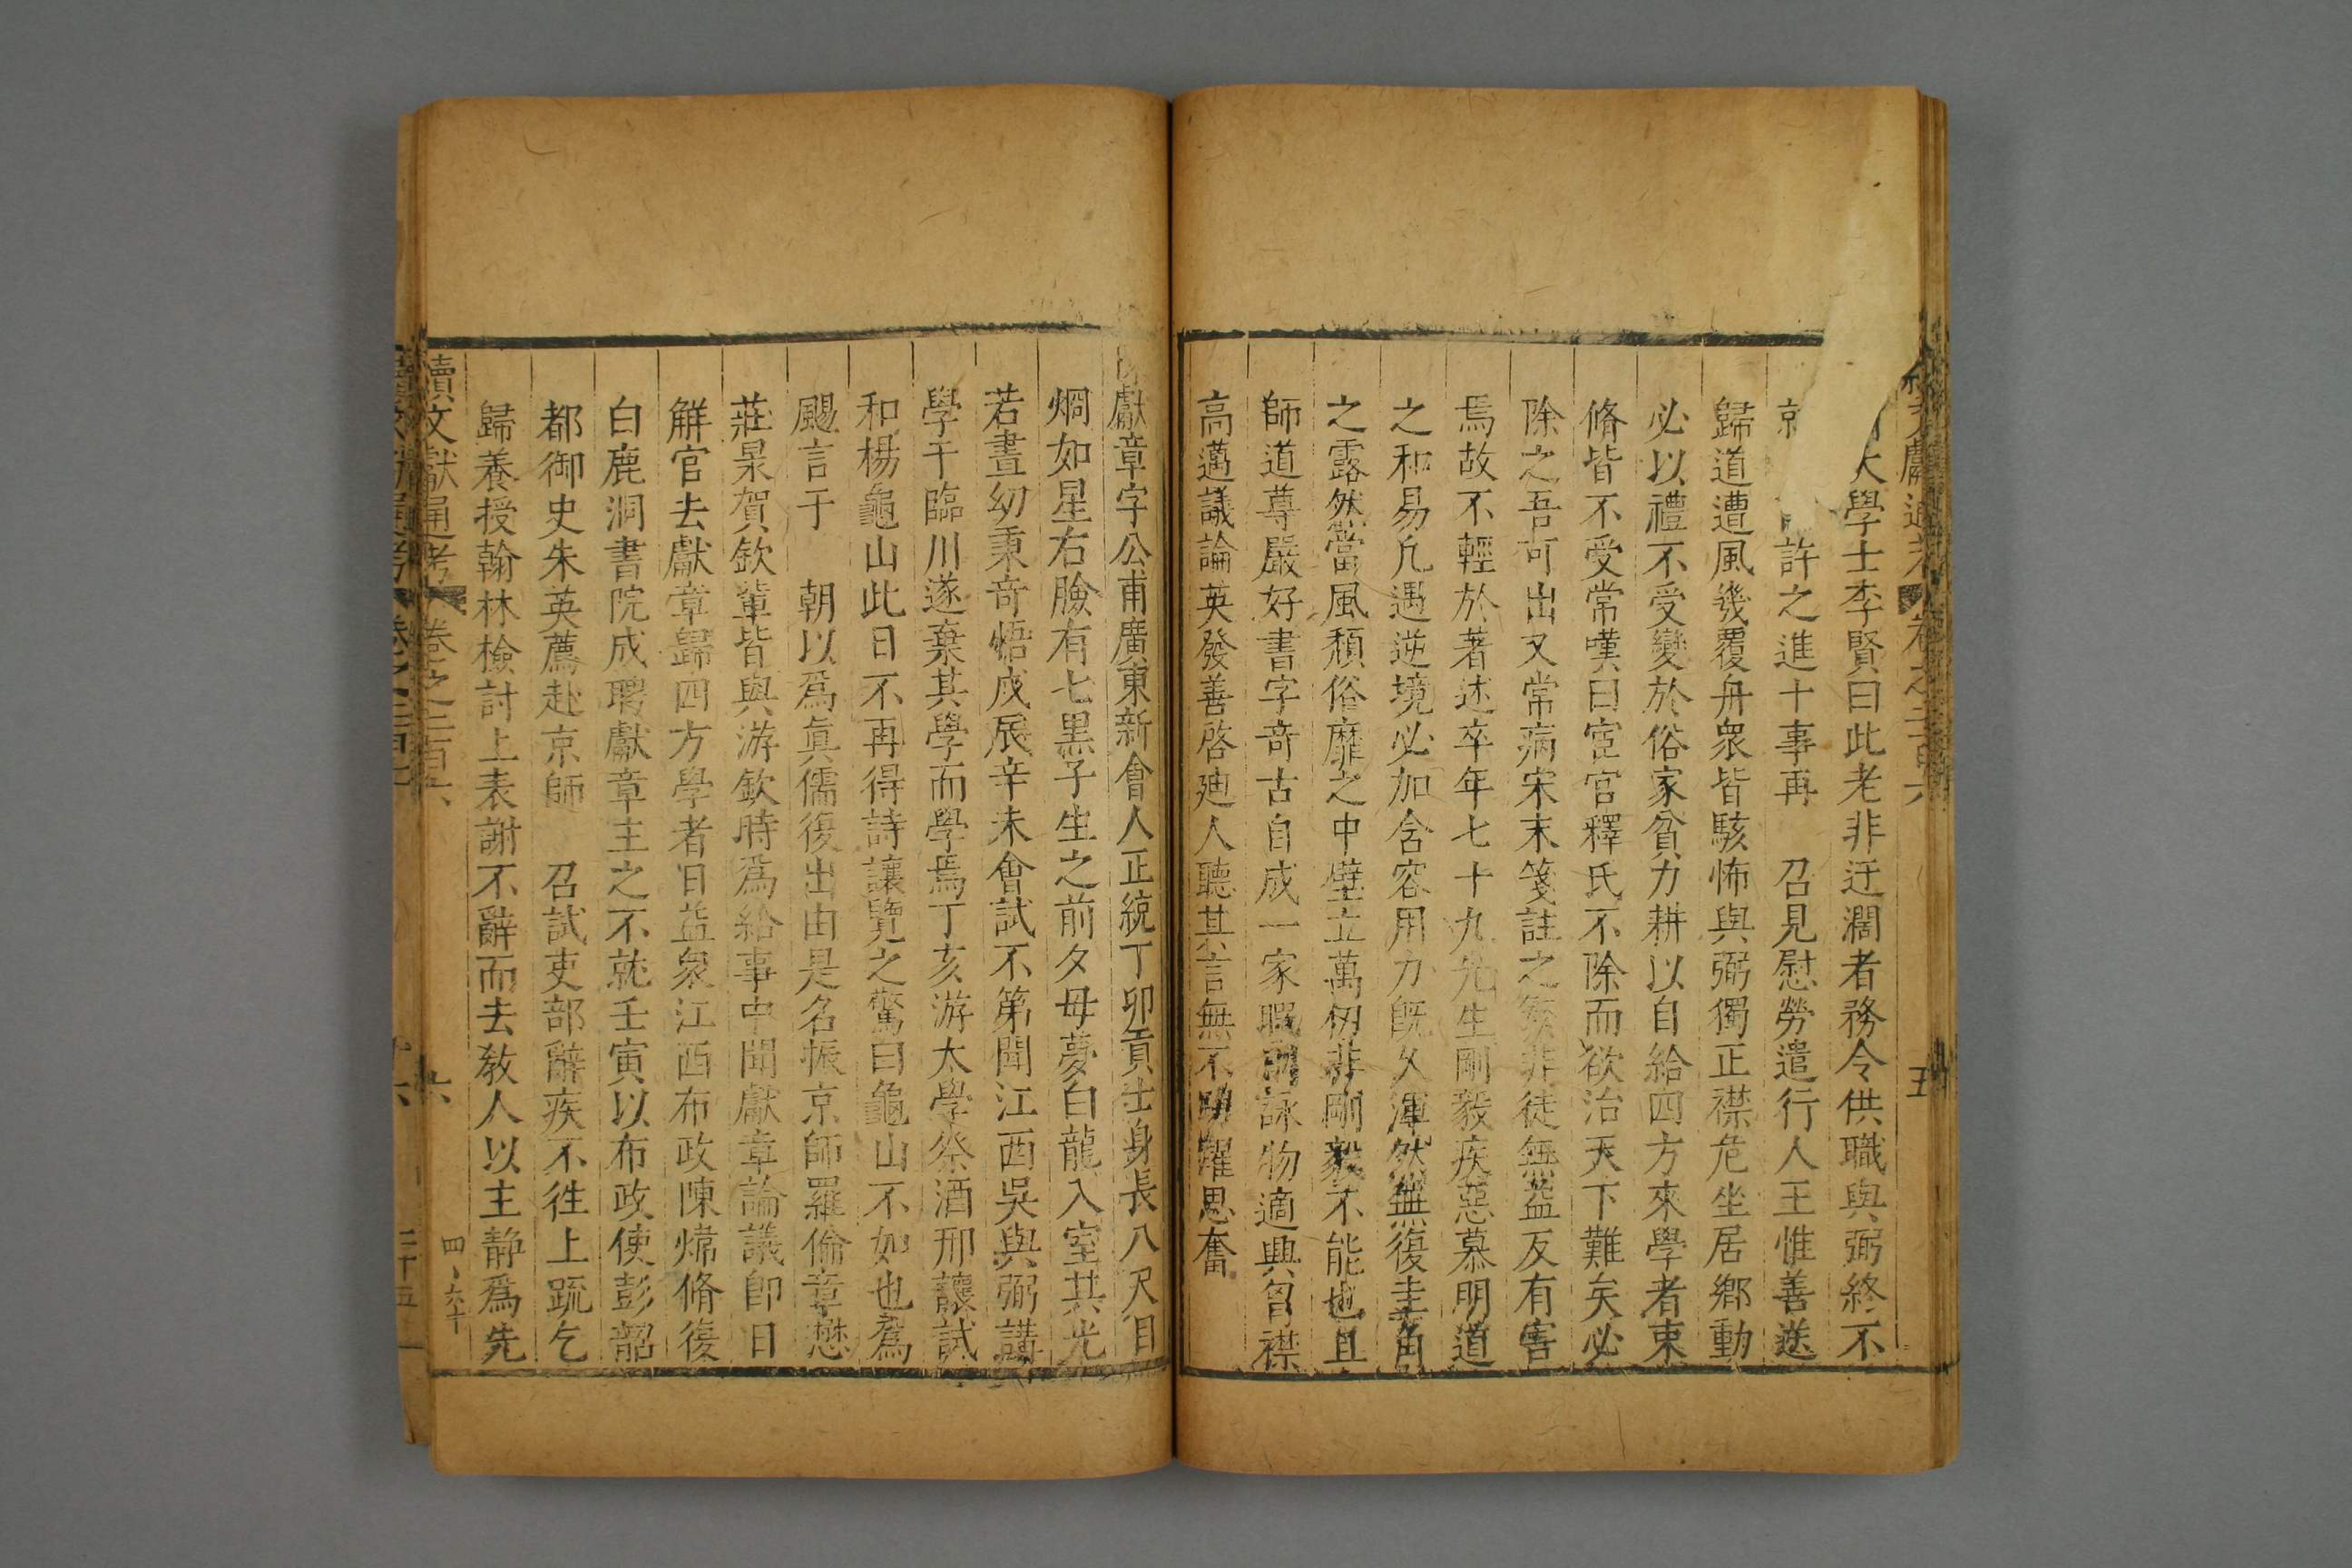 續文獻通考 卷之二百六 五
大學士李賢曰此老非迂濶者務令供職與弼終不
許之進十事再 召見慰勞遣行人王惟善送
歸道遭風幾覆舟衆皆駭怖與弼獨正襟危坐居鄉動
必以禮不受變於俗家貧力耕以自給四方來學者束
脩皆不受常嘆曰宦官釋氏不除而欲治天下難矣必
除之吾可出又常病宋末箋註之繁非徒無益反有害
焉故不輕於著述卒年七十九先生剛毅疾惡慕明道
之和易凡遇逆境必加含容用力旣久渾然無復圭角
之露然當風頹俗靡之中壁立萬仞非剛毅不能也且
師道尊嚴好書字奇古自成一家暇則詠物適興胷襟
高邁議論英發善啓廸人聽其言無不踴躍思奮
獻章字公甫廣東新會人正統丁卯貢士身長八尺目
烱如星右臉有七黑子生之前夕母夢白龍入室其光
若晝幼秉奇悟成辰辛未會試不第聞江西吳與弼講
學干臨川遂棄其學而學焉丁亥游太學祭酒邢讓試
和楊龜山此日不再得詩讓覽之驚曰龜山不如也爲
颺言于 朝以爲眞儒復出由是名振京師羅倫章懋
莊㫤賀欽輩皆與游欽時爲給事中聞獻章論議卽日
解官去獻章歸四方學者日益衆江西布政陳煒脩復
白鹿洞書院成聘獻章主之不就壬寅以布政使彭韶
都御史朱英薦赴京師 召試吏部辭疾不徃上疏乞
歸養授翰林檢討上表謝不辭而去敎人以主靜爲先
續文獻通考 卷之二百六 六